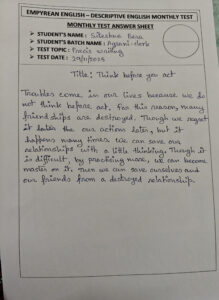 EMPYREAN ENGLISH – DESCRIPTIVE ENGLISH MONTHLY TEST
MONTHLY TEST ANSWER SHEET
➢ STUDENT'S NAME : Bera
➢ STUDENT'S BATCH NAME : Agrani-clerk
➢ TEST TOPIC : Precis writing
➢ TEST DATE : 29/11/2025
Title: Think before you act
Troubles come in our lives because we do
not think before act. For this reason, many
friendships are destroyed. Though we regret
it later the our actions later, but it
happens many times. We can save our
relationships with a little thinking. Though it
is difficult, by practicing more, we can become
master on it. Then we can save ourselves and
our friends from a destroyed relationship.